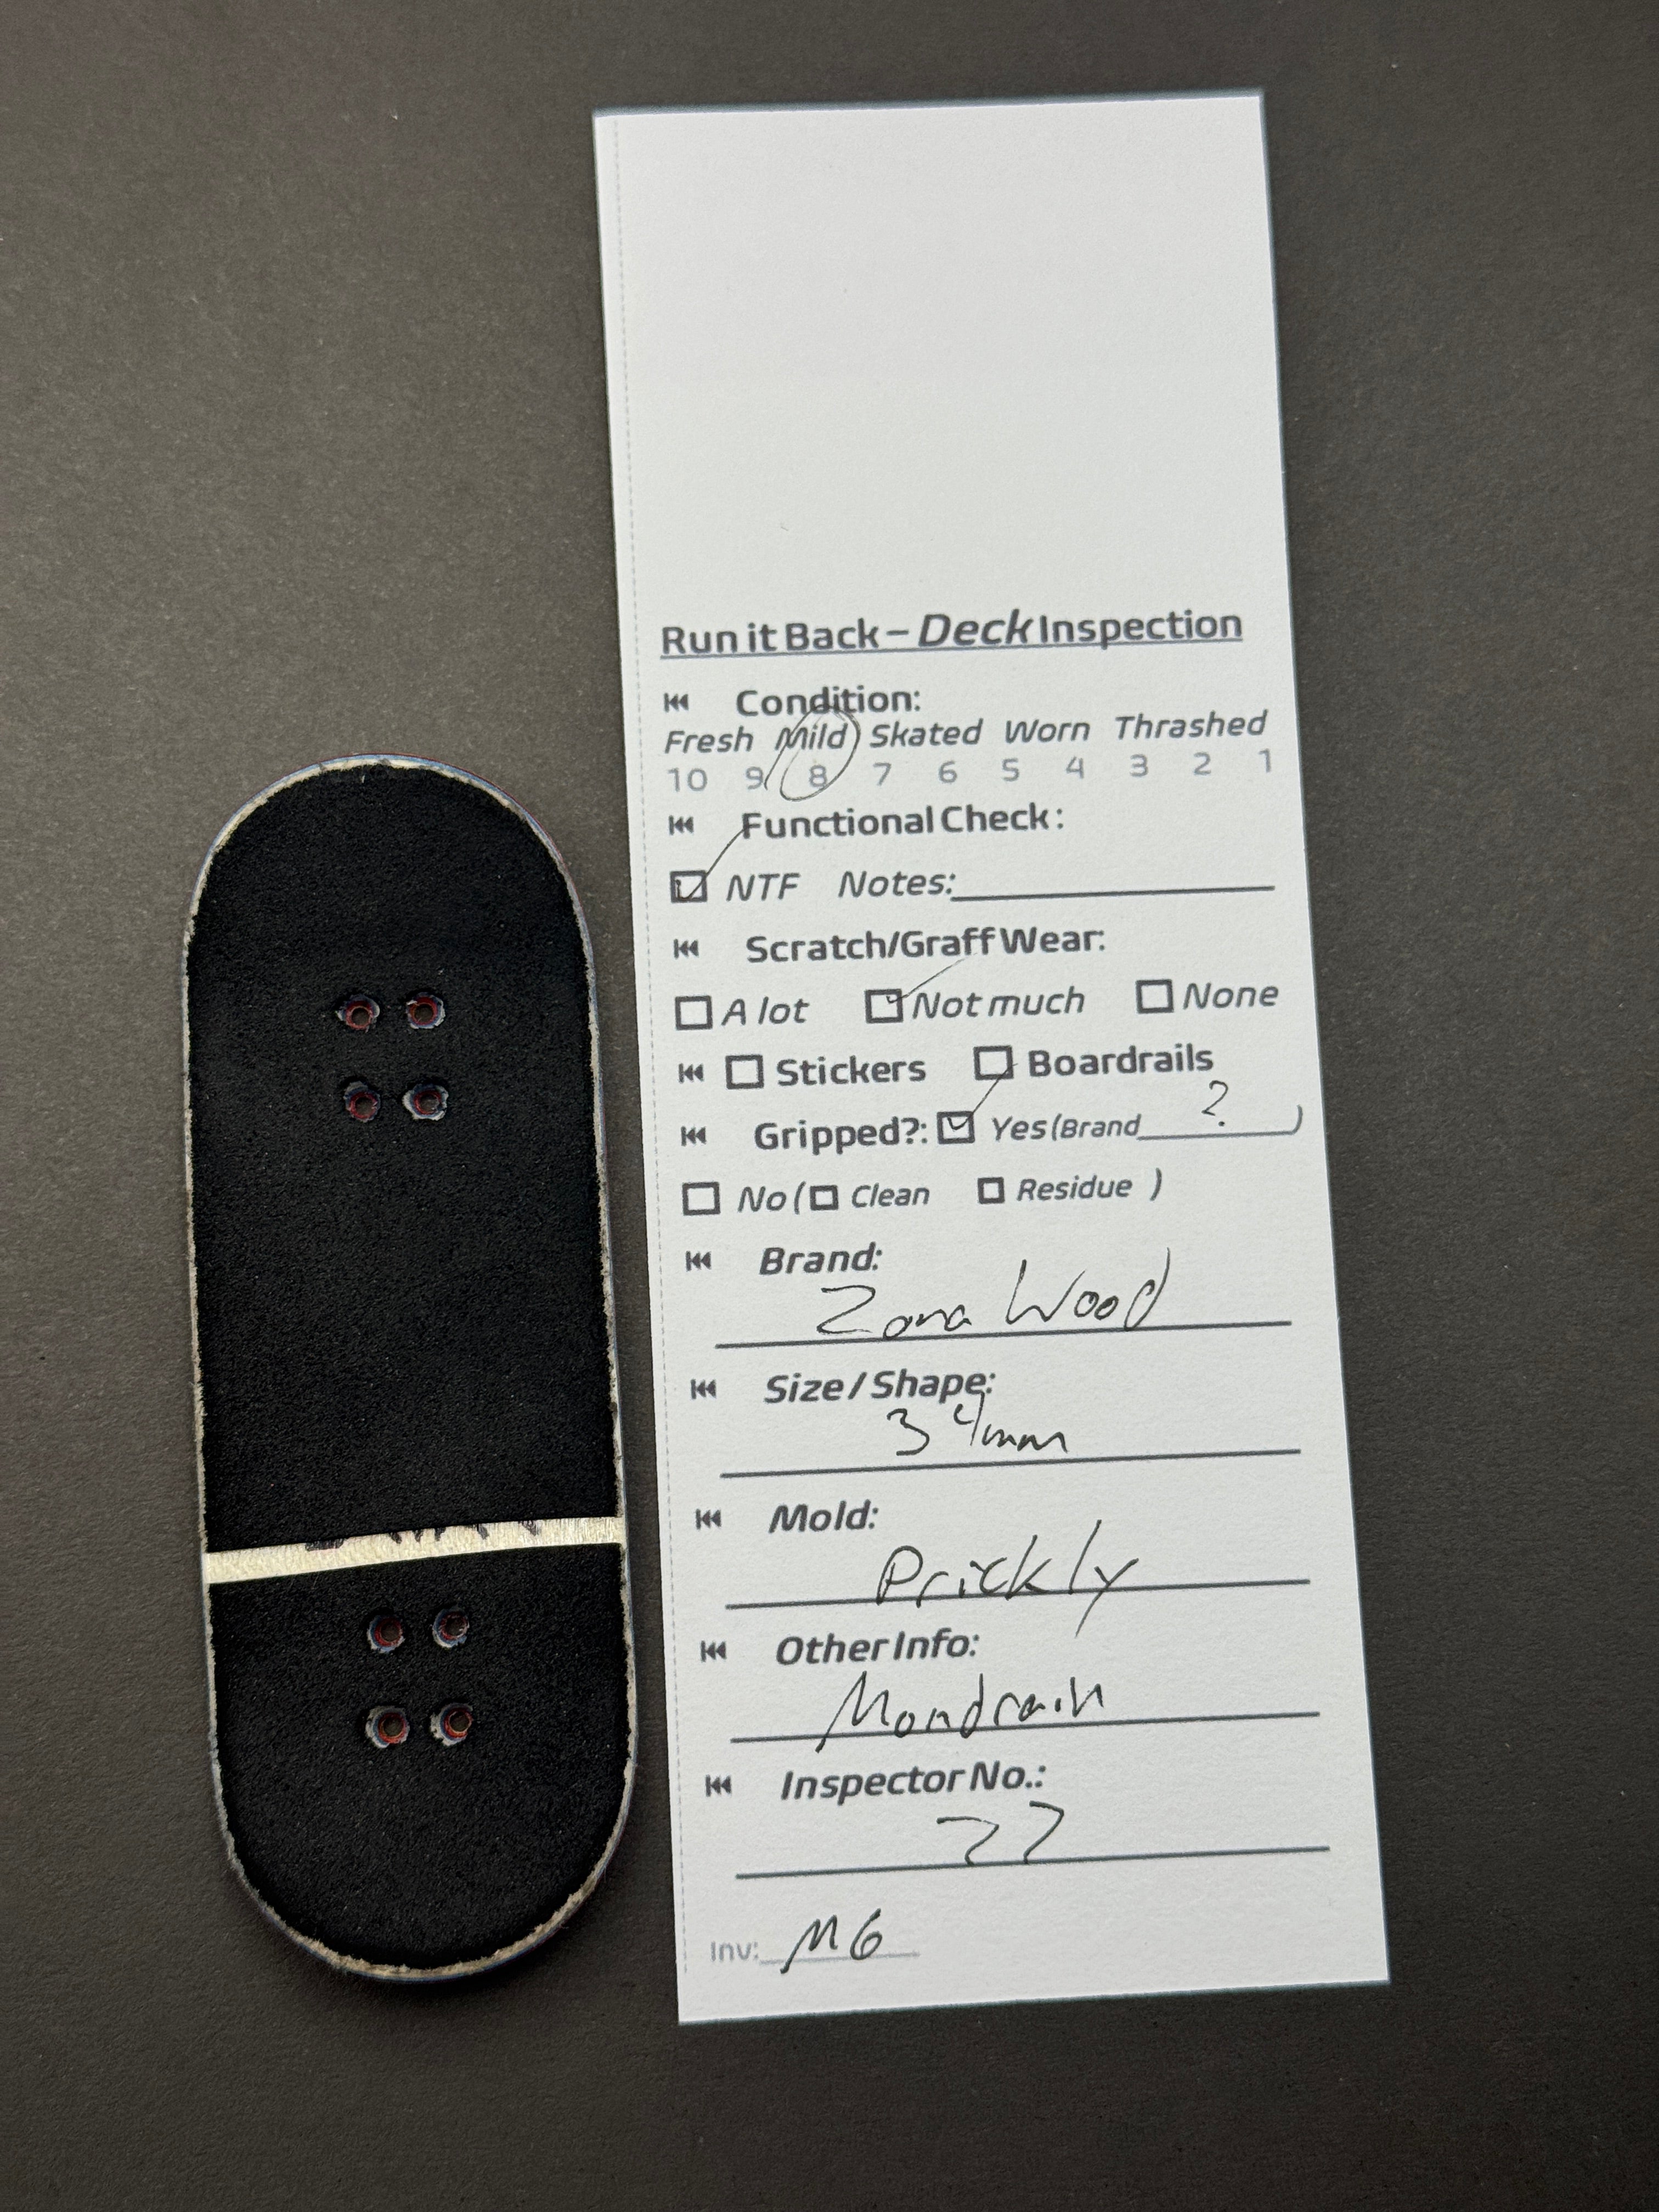 Run it Back – Deck Inspection
Condition:
Fresh Mild Skated Worn Thrashed
10 9 8 7 6 5 4 3 2 1
Functional Check:
NTF Notes:
Scratch/Graff Wear:
A lot Not much None
Stickers Boardrails
Gripped?: Yes (Brand ? )
No ( Clean Residue )
Brand:
Zona Wood
Size / Shape:
34mm
Mold:
Prickly
Other Info:
Mondrain
Inspector No.:
77
Inv: M6